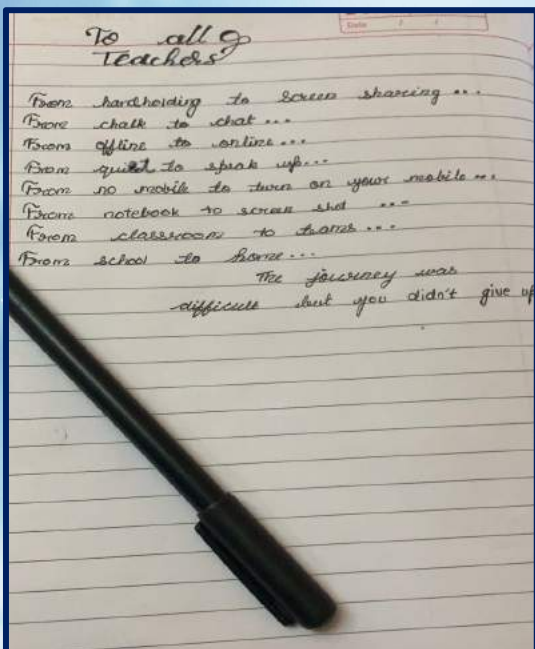 Date / /
To all
Teachers
From handholding to screen sharing ...
From chalk to chat ...
From offline to online ...
From quiet to speak up...
From no mobile to turn on your mobile ...
From notebook to screen shot ...
From classroom to teams ...
From school to home ...
The journey was
difficult but you didn't give up